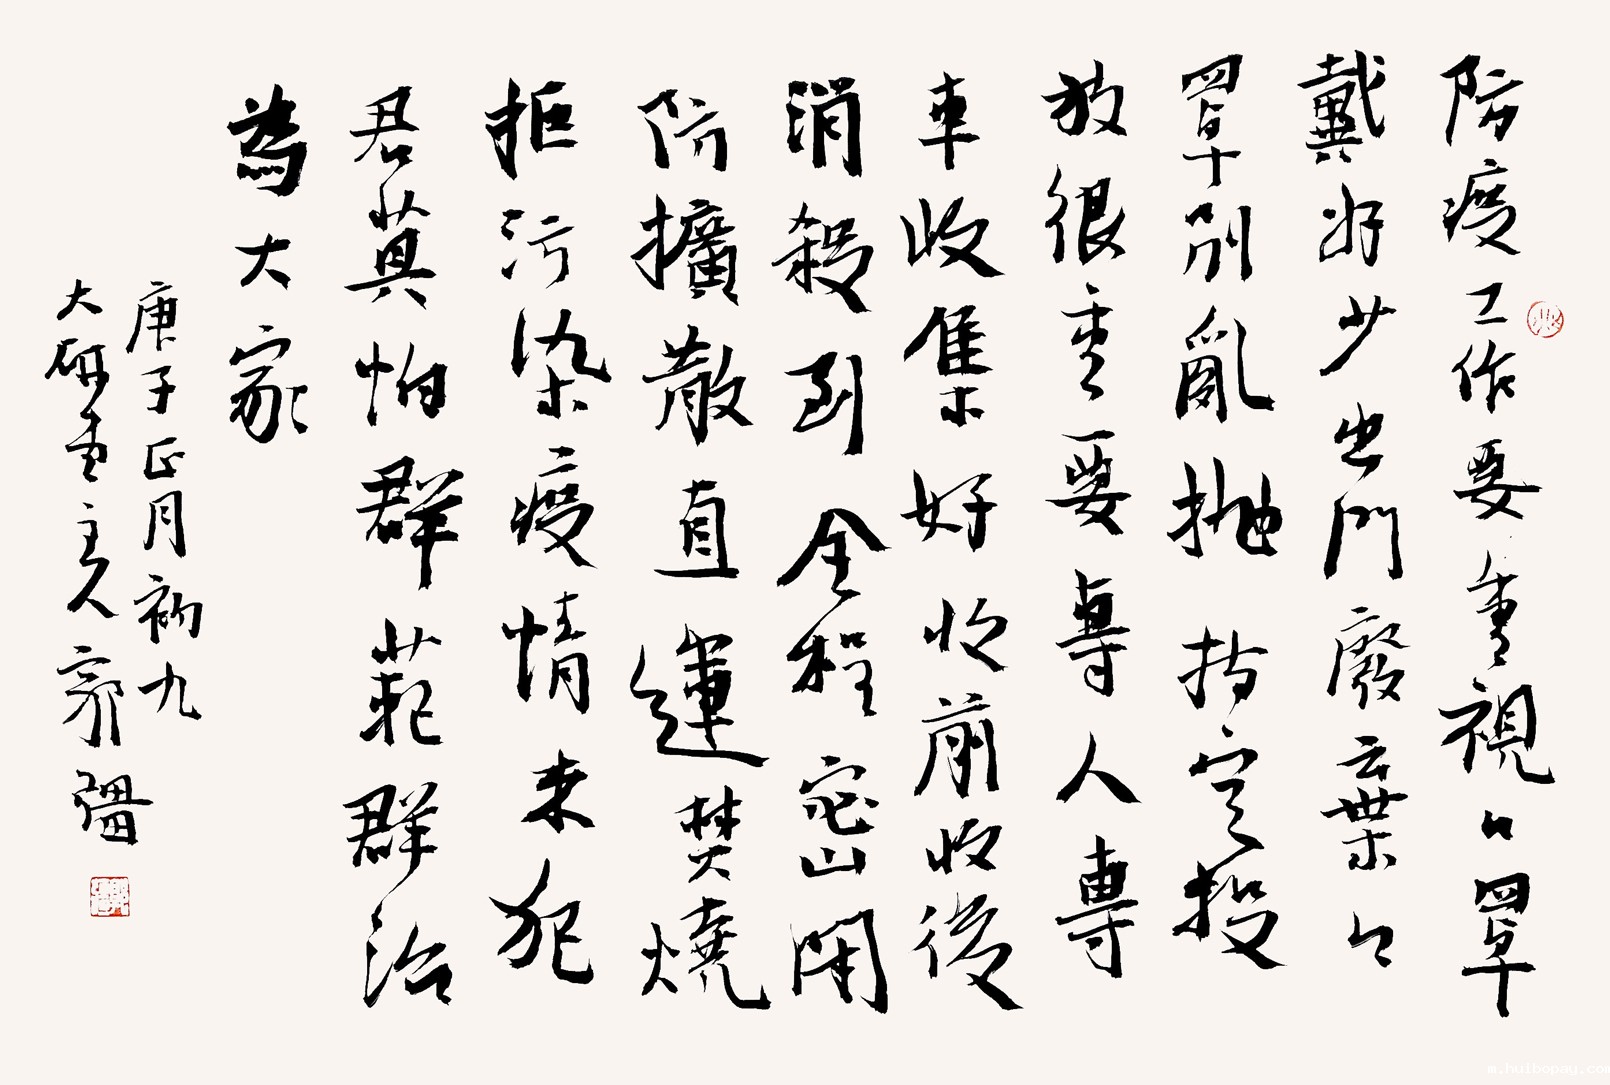 防疫工作要重視口罩
戴好少出門廢棄口
罩別亂抛指定投
放很重要專人專
車收集好收前收後
消殺到全程密閉
防擴散直運焚燒
拒污染疫情未犯
君莫怕群範群治
為大家
庚子正月初九
大研堂主人郭疆
m.huibopay.com